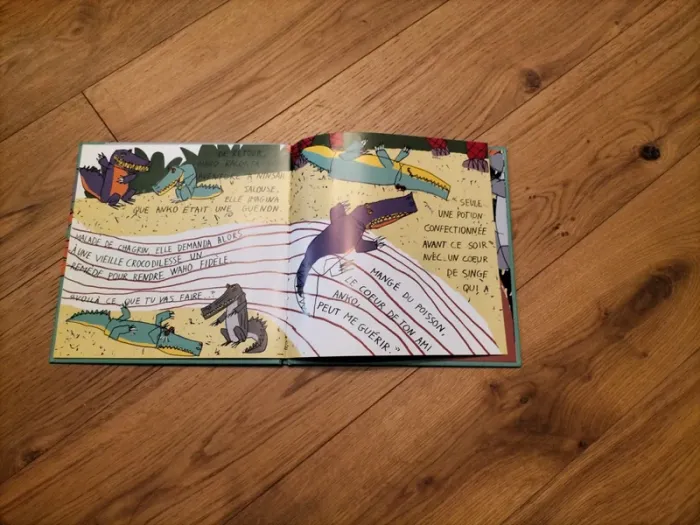 DE RETOUR,
WAHO RACONTA
À NINSAH.
JALOUSE,
ELLE IMAGINA
QUE ANKO ÉTAIT UNE GUENON.
MALADE DE CHAGRIN, ELLE DEMANDA ALORS
À UNE VIEILLE CROCODILESSE UN
REMÈDE POUR RENDRE WAHO FIDÈLE.
"VOILÀ CE QUE TU VAS FAIRE..."
"SEULE
UNE POTION
CONFECTIONNÉE
AVANT CE SOIR
AVEC UN COEUR
DE SINGE
QUI A
MANGÉ DU POISSON,
LE COEUR DE TON AMI
ANKO,
PEUT ME GUÉRIR."